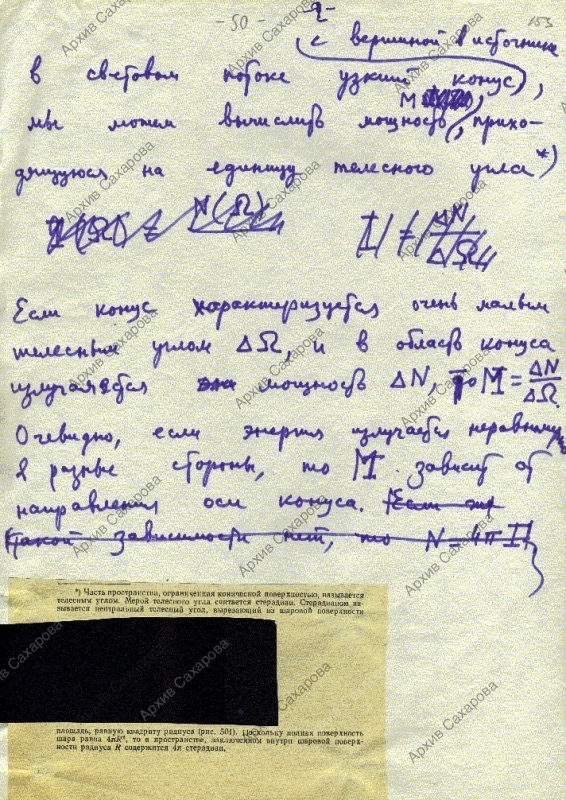 - 50 -
-9-
153
с вершиной в источнике
в световом потоке узкий конус,
М
мы можем вычислить мощность, прихо-
дящуюся на единицу телесного угла*)
N(Ω)
I = ΔN/ΔΩ
Если конус характеризуется очень малым
телесным углом ΔΩ, и в область конуса
излучается мощность ΔN, то M = ΔN/ΔΩ.
Очевидно, если энергия излучается неравномерно
в разные стороны, то M зависит от
направления оси конуса. Если же
такой зависимости нет, то N = 4π I
*) Часть пространства, ограниченная конической поверхностью, называется
телесным углом. Мерой телесного угла считается стерадиан. Стерадианом на-
зывается центральный телесный угол, вырезающий из шаровой поверхности
площадь, равную квадрату радиуса (рис. 501). Поскольку полная поверхность
шара равна 4πR², то в пространстве, заключенном внутри шаровой поверх-
ности радиуса R содержится 4π стерадиан.
Архив Сахарова